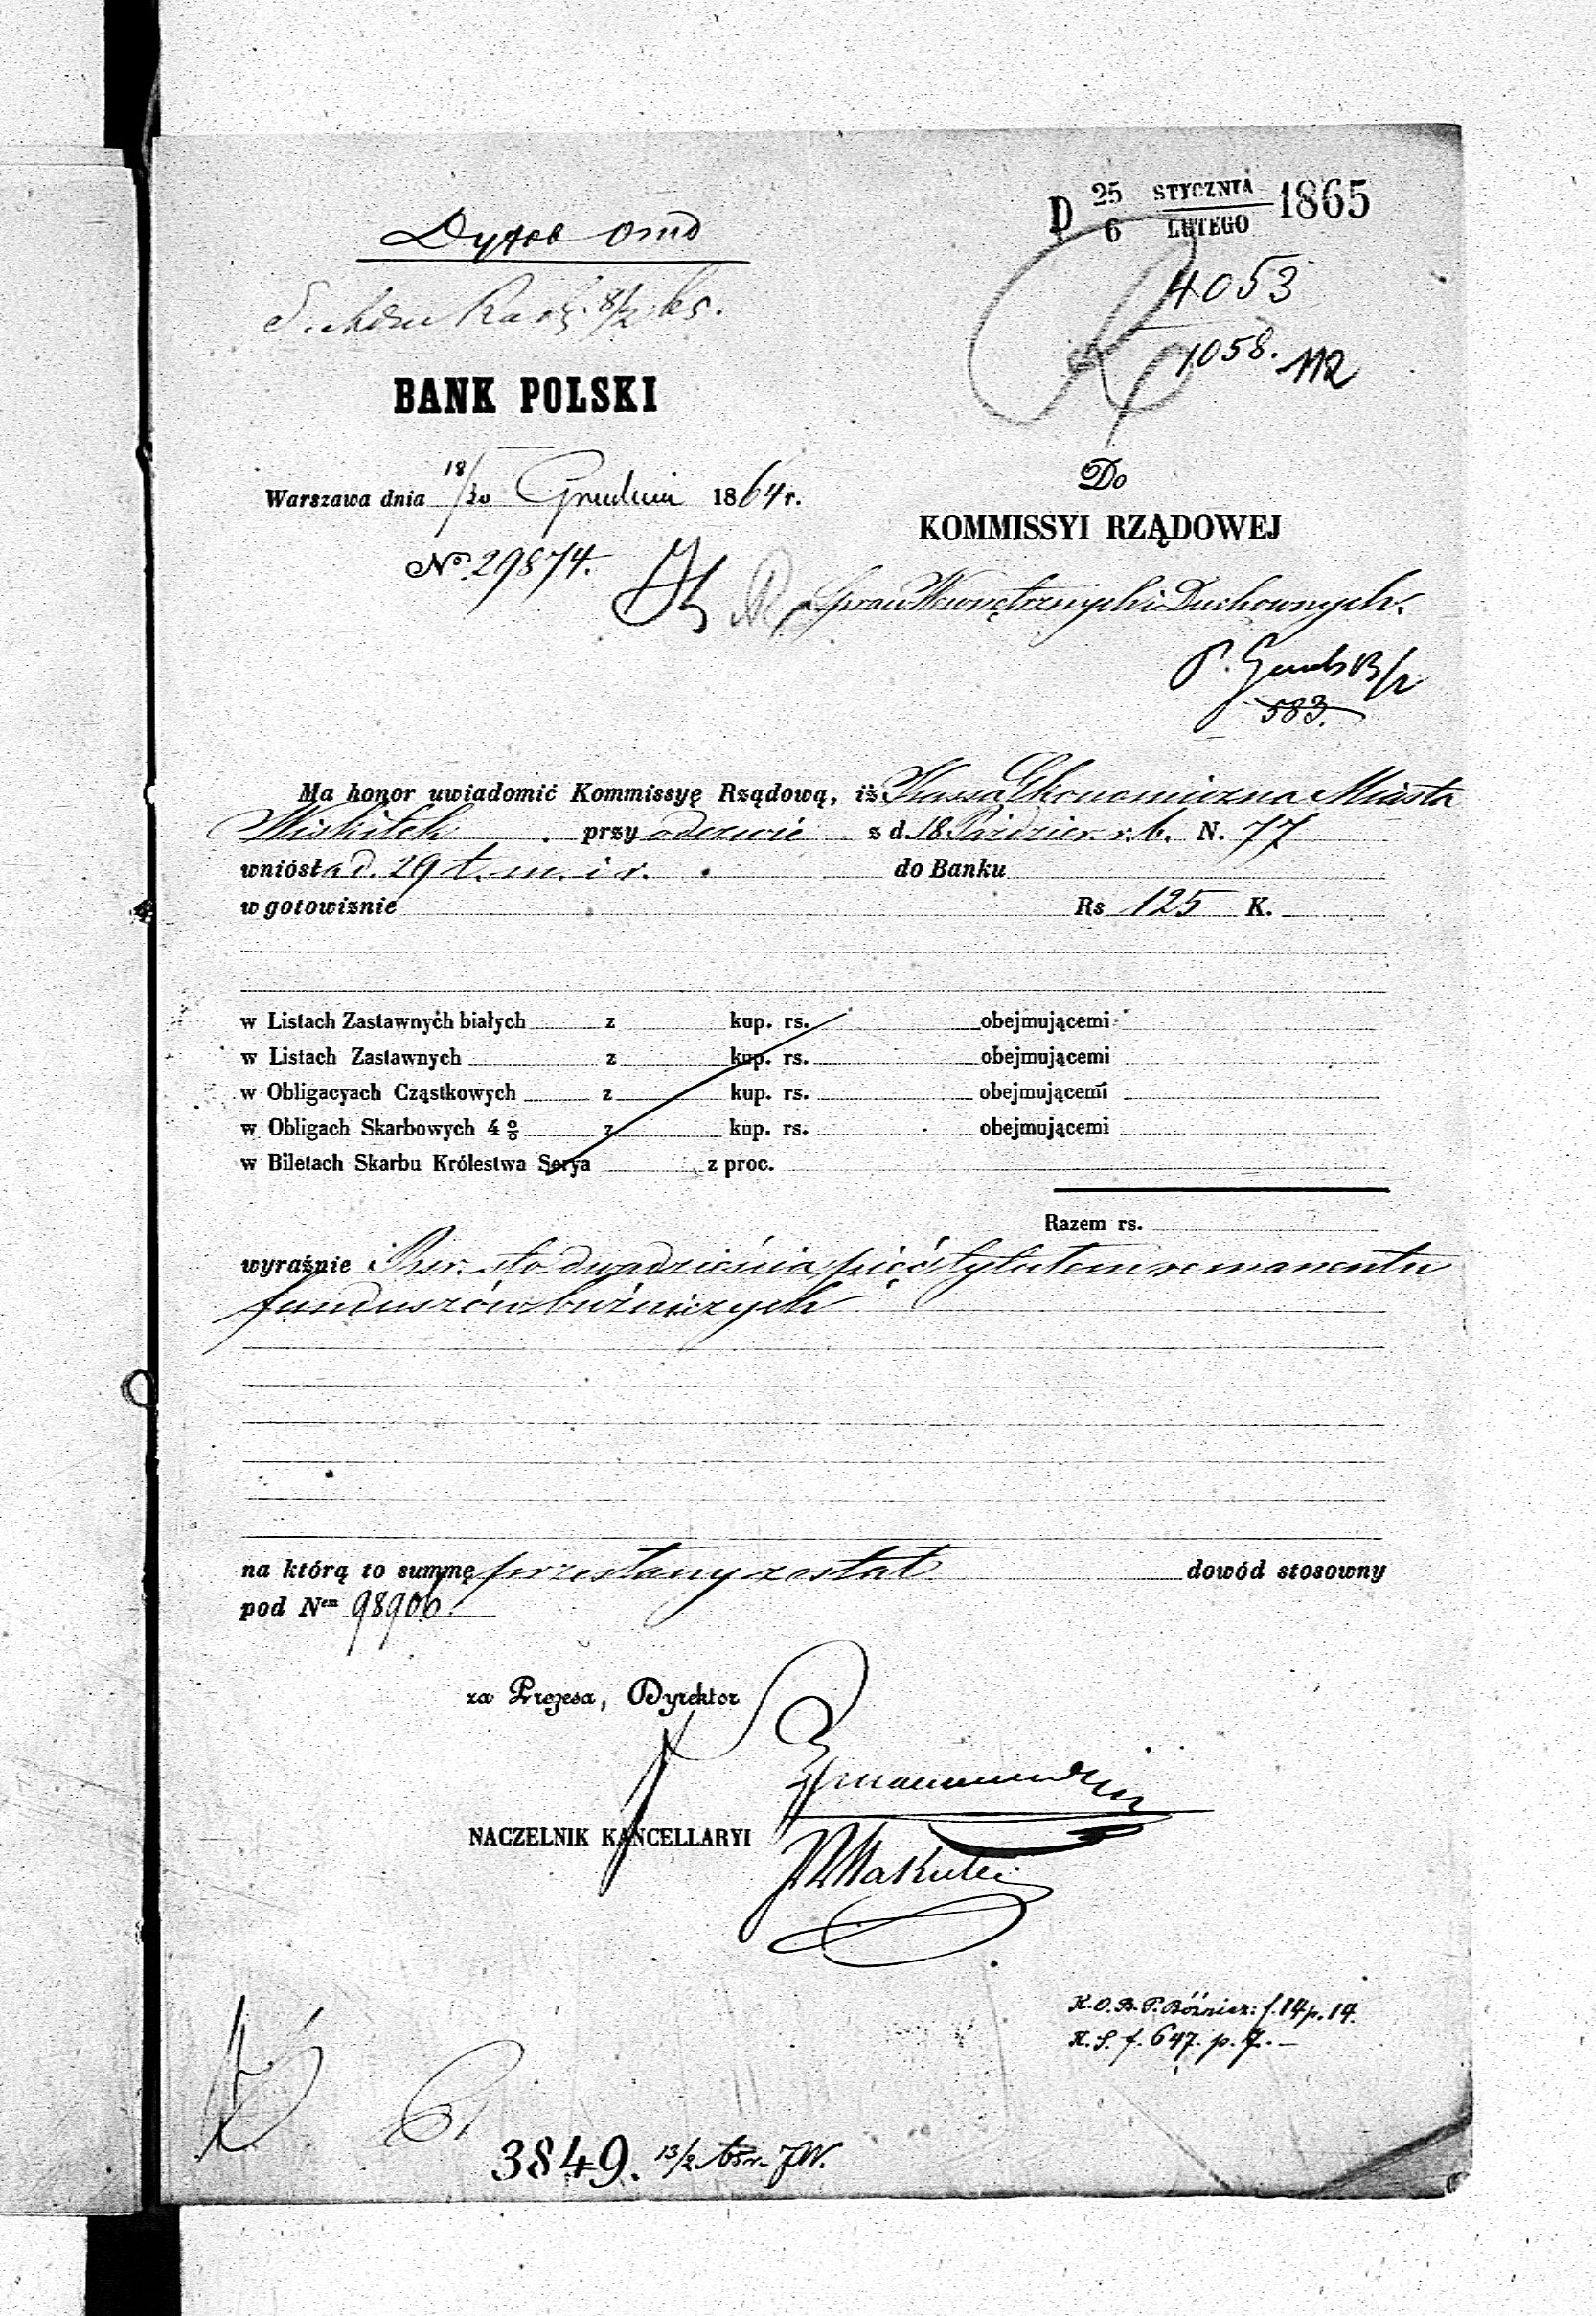 D 25 STYCZNIA 1865
6 LUTEGO
4053
1058. 112
BANK POLSKI
Warszawa dnia 18/30 Grudnia 1864 r.
No. 29874.
Do
KOMMISSYI RZĄDOWEJ
Spraw Wewnętrznych i Duchownych.
583.
Ma honor uwiadomić Kommissyę Rządową, iż Kassa Ekonomiczna Miasta
Wiskitek przy odezwie z d. 18 Paździer. r. b. N. 77
wniósła d. 29 t. m. i r. do Banku
w gotowiznie Rs 125 K.
w Listach Zastawnych białych z kup. rs. obejmującemi
w Listach Zastawnych z kup. rs. obejmującemi
w Obligacyach Cząstkowych z kup. rs. obejmującemi
w Obligach Skarbowych 4 % z kup. rs. obejmującemi
w Biletach Skarbu Królestwa Serya z proc.
Razem rs.
wyraźnie Rsr. sto dwadzieścia pięć tytułem remanentu
funduszów bóźniczych
na którą to summę przesłany został dowód stosowny
pod Nem 98906.
za Prezesa, Dyrektor
NACZELNIK KANCELLARYI
K. O. B. P. Bóżnicz: f. 14 p. 14.
K. S. f. 647. p. 7. —
3849. 13/2